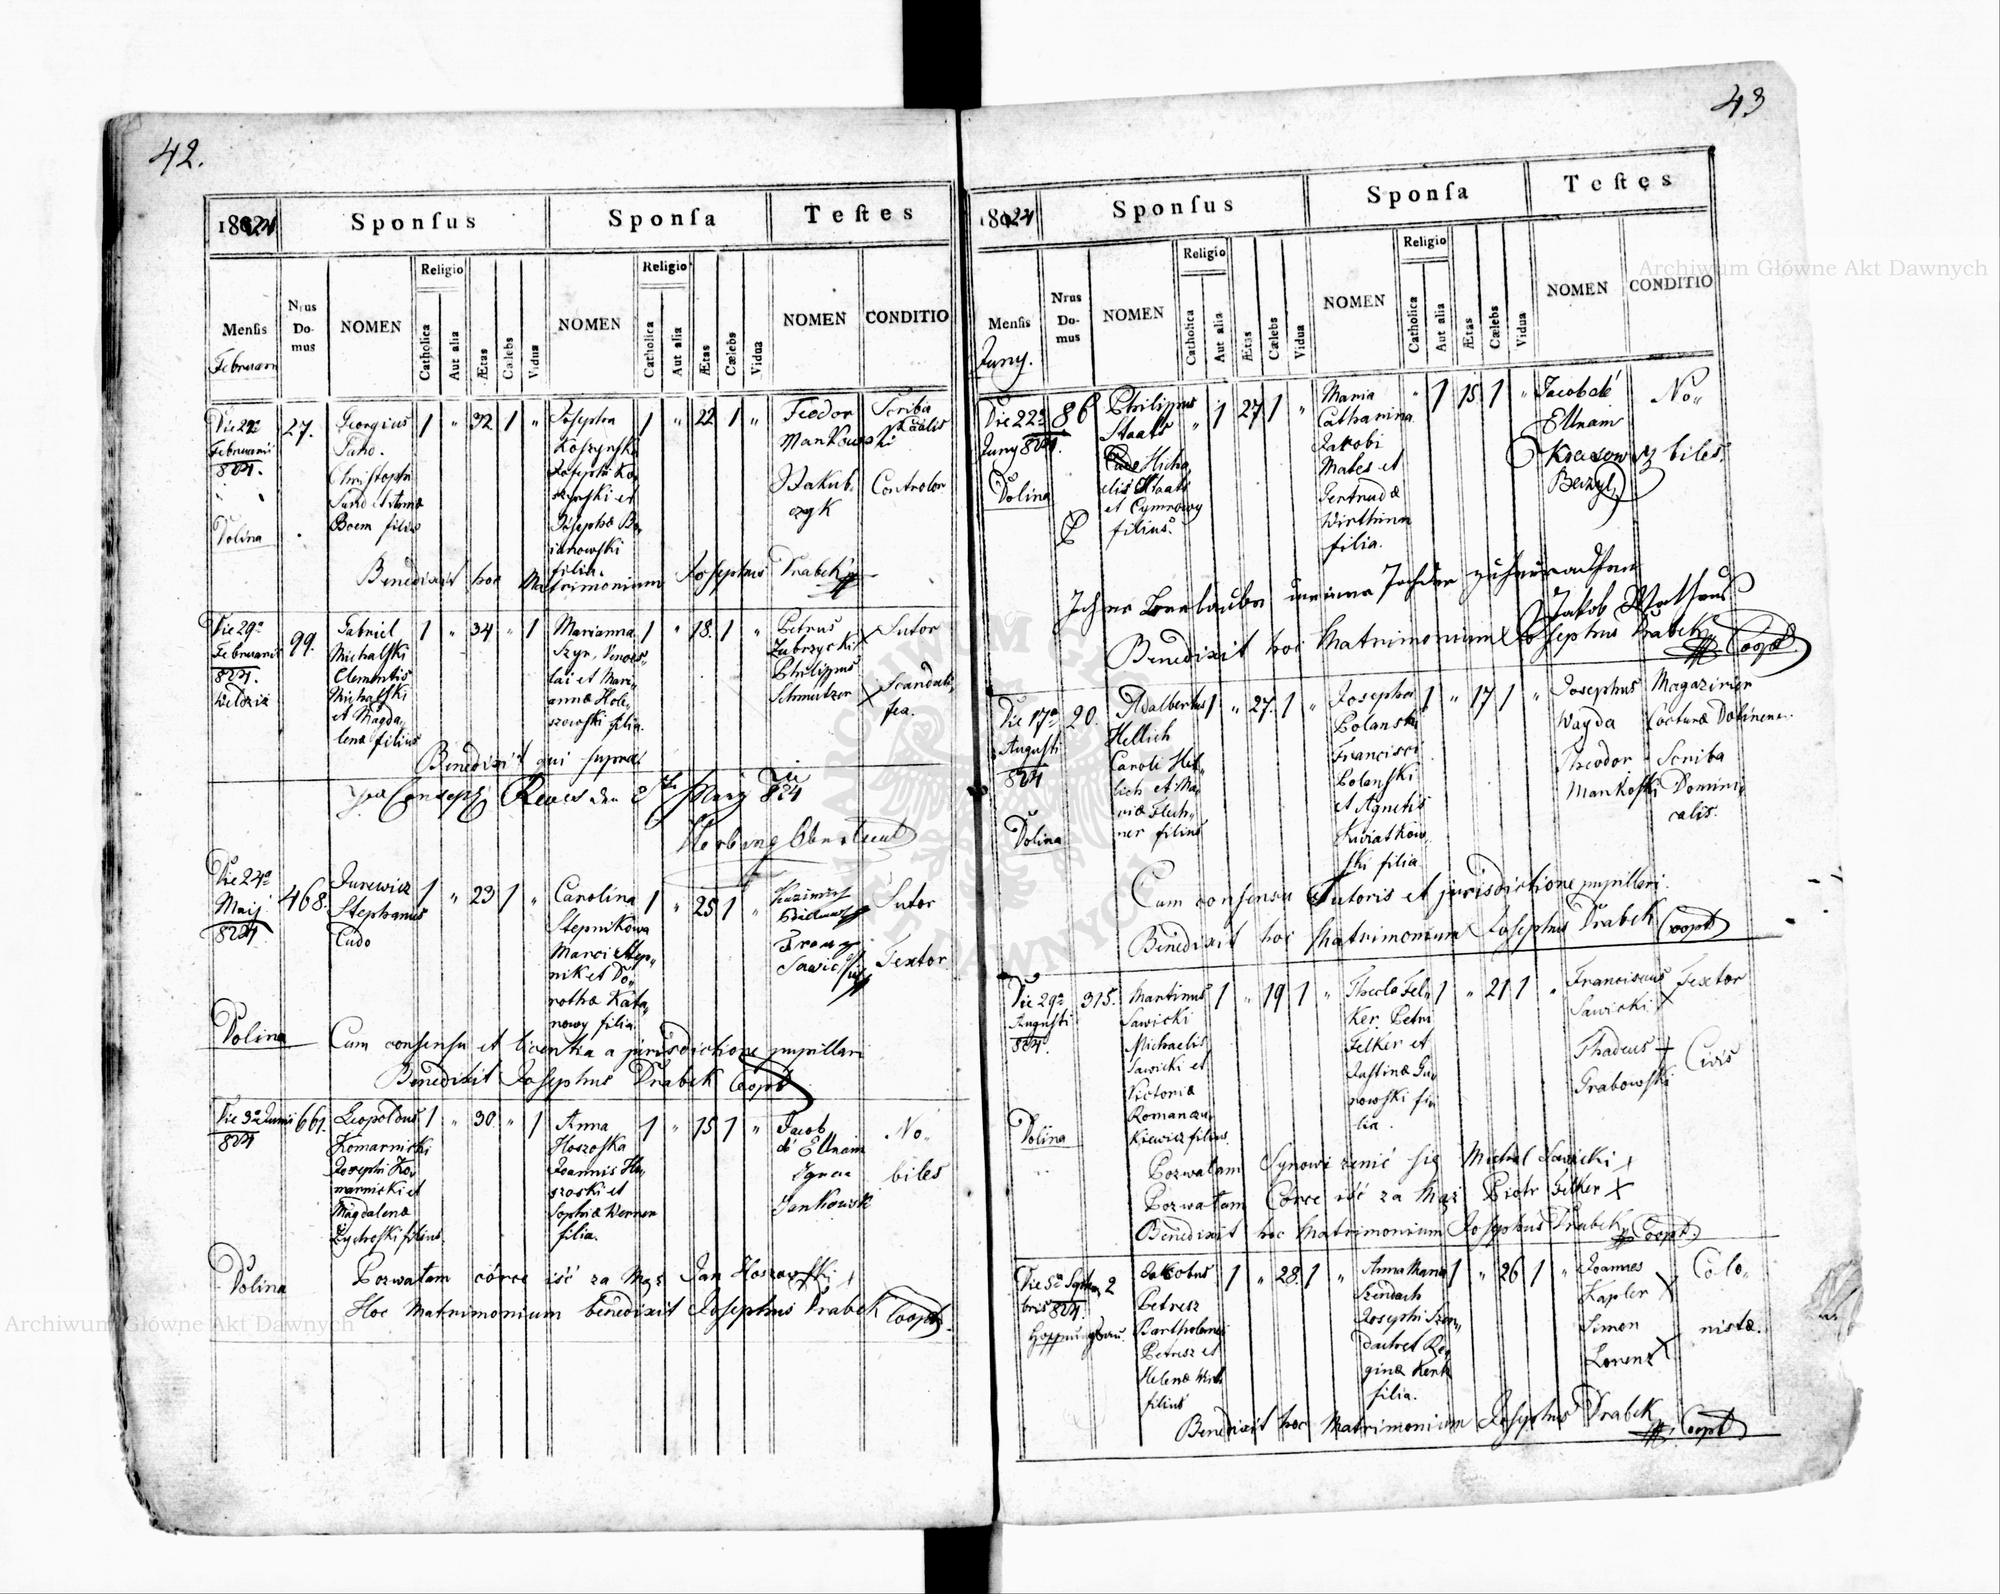 42.
1824
Sponſus
Sponſa
Teſtes
Menſis
Februarii
Nrus Domus
NOMEN
Religio
Catholica
Aut alia
Ætas
Cælebs
Vidua
NOMEN
Religio
Catholica
Aut alia
Ætas
Cælebs
Vidua
NOMEN
CONDITIO
Die 22a
Februarii
824.
Dolina
27.
Georgius
Christophi
Boem filius
1 " 32 1 "
Josepha
Koszynska
Josephi Ko-
szynski et
Josephæ Bo-
janowski
filia.
1 " 22 1 "
Teodor
Mankowski
Jakub-
czyk
Scriba
Controlor
Benedixit hoc Matrimonium Josephus Drabek
Die 29a
Februarii
824.
99.
Gabriel
Michalski
Clementis
Michalski
et Magda-
lenæ filius
1 " 34 " 1
Marianna
Szyr, Vences-
lai et Mari-
annæ Hole-
szowski filia.
1 " 18. 1 "
Petrus
Zubrzycki
Philippus
Schmeltzer
Sutor
Benedixit qui supra
Die 24a
Maij
824.
Dolina
468.
Jurewicz
Stephanus
1 " 23 1 "
Carolina
Stepnikowa
Marci Step-
nik et Do-
rothæ Kata-
nowy filia
1 " 25 1 "
Kazimirz
Franz
Sawicki
Sutor
Textor
Cum consensu et licentia a jurisdictione pupillari
Benedixit Josephus Drabek Coopt
Die 3a Junii
824
Dolina
661.
Leopoldus
Komarnicki
Josephi Ko-
marnicki et
Magdalenæ
Zychoski filius.
1 " 30 " 1
Anna
Hoszoska
Joannis Ho-
szoski et
Sophiæ Werner
filia.
1 " 15 1 "
Jacob
de Ellnain
Ignac
Jankowsk
No-
biles
Pozwalam córce iść za Mąż Jan Hoszowski
Hoc Matrimonium benedixit Josephus Drabek Coopt.
43
1824
Sponſus
Sponſa
Teſtes
Menſis
Juny.
Nrus Domus
NOMEN
Religio
Catholica
Aut alia
Ætas
Cælebs
Vidua
NOMEN
Religio
Catholica
Aut alia
Ætas
Cælebs
Vidua
NOMEN
CONDITIO
Die 22a
Juny 824.
Dolina
86
Philippus
Staats
Micha-
elis Staats
et Cymrowy
filius.
" 1 27 1 "
Maria
Catharina
Jakobi
Mates et
Gertrudæ
Wirthin
filia.
" 1 15 1 "
Jacob de
Ellnain
No-
biles.
meine Tochter zu heurathen
Jakob Matheus
Benedixit hoc Matrimonium Josephus Drabek Coopt.
Die 17a
Augusti
824
Dolina
20.
Adalbertus
Hellich
Caroli Hel-
lich et Ma-
riæ Flech-
ner filius
1 " 27. 1 "
Josepha
Polanski
Francisci
Polanski
et Agnetis
Kwiatkow-
ski filia
1 " 17 1 "
Josephus
Wayda
Theodor
Mankoski
Magazinier
Cocturæ Dolinens.
Scriba
Domini-
calis.
Cum consensu Tutoris et jurisdictione pupillari.
Benedixit hoc Matrimonium Josephus Drabek Coopt
Die 29a
Augusti
824.
Dolina
315.
Martinus
Sawicki
Michaelis
Sawicki et
Victoriæ
Romanczu-
kiewicz filius.
1 " 19 1 "
Thecla Fel-
ker Petri
Felker et
Justinæ Gu-
nowski fi-
lia.
1 " 21 1 "
Franciscus
Sawicki
Thadeus
Grabowski
Textor
Civis
Pozwalam Synowi żenić się Michal Sawicki
Pozwalam Córce iść za Mąż Piotr Felker
Benedixit hoc Matrimonium Josephus Drabek Coopt.
Die 5a Septem-
bris 824.
Hoffnungsau.
2
Jakobus
Petresz
Bartholomei
Petresz et
Helenæ
filius
1 " 28. 1 "
Anna Maria
Szendach
Josephi Szen-
dach et Re-
ginæ Kerk
filia.
1 " 26 1 "
Joannes
Kapler
Simon
Lorenz
Colo-
nistæ.
Benedixit hoc Matrimonium Josephus Drabek Coopt
Archiwum Główne Akt Dawnych
Archiwum Główne Akt Dawnych